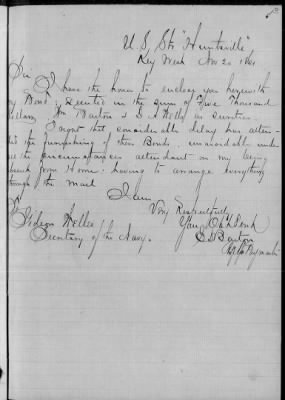 U. S. Str "Huntsville"
Key West Nov 20 1861
Sir
I have the honor to enclose you herewith
my Bond executed in the sum of Five Thousand
Dollars, Wm Barton & as Sureties
I regret that considerable delay has atten-
ded the furnishing of these Bonds, unavoidable und-
er the circumstances attendant on my being
absent from Home; having to arrange everything
through the Mail
I am
Very Respectfully
Your Obt
Gideon Welles
Secretary of the Navy.
Barton
Paymaster